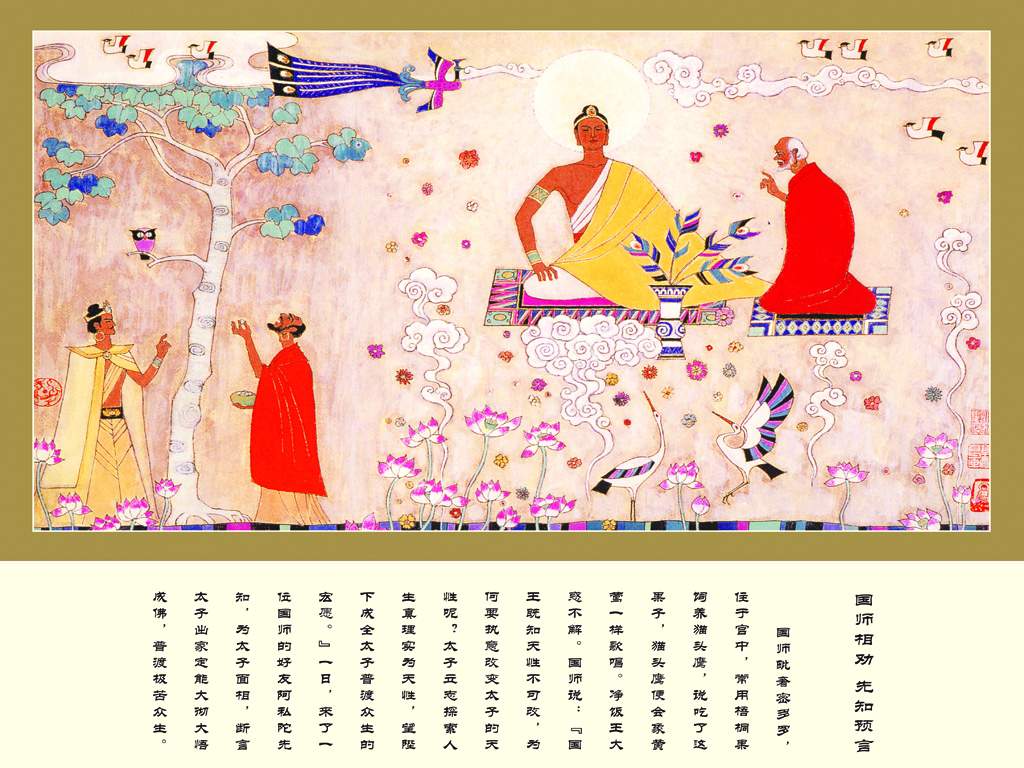 国师相劝 先知预言
国师毗奢密多罗，
住于宫中，常用梧桐果
饲养猫头鹰，说吃了这
果子，猫头鹰便会象黄
莺一样歌唱。净饭王大
惑不解。国师说：『国
王既知天性不可改，为
何要执意改变太子的天
性呢？太子立志探索人
生真理实为天性，望陛
下成全太子普渡众生的
宏愿。』一日，来了一
位国师的好友阿私陀先
知，为太子面相，断言
太子出家定能大彻大悟
成佛，普渡极苦众生。